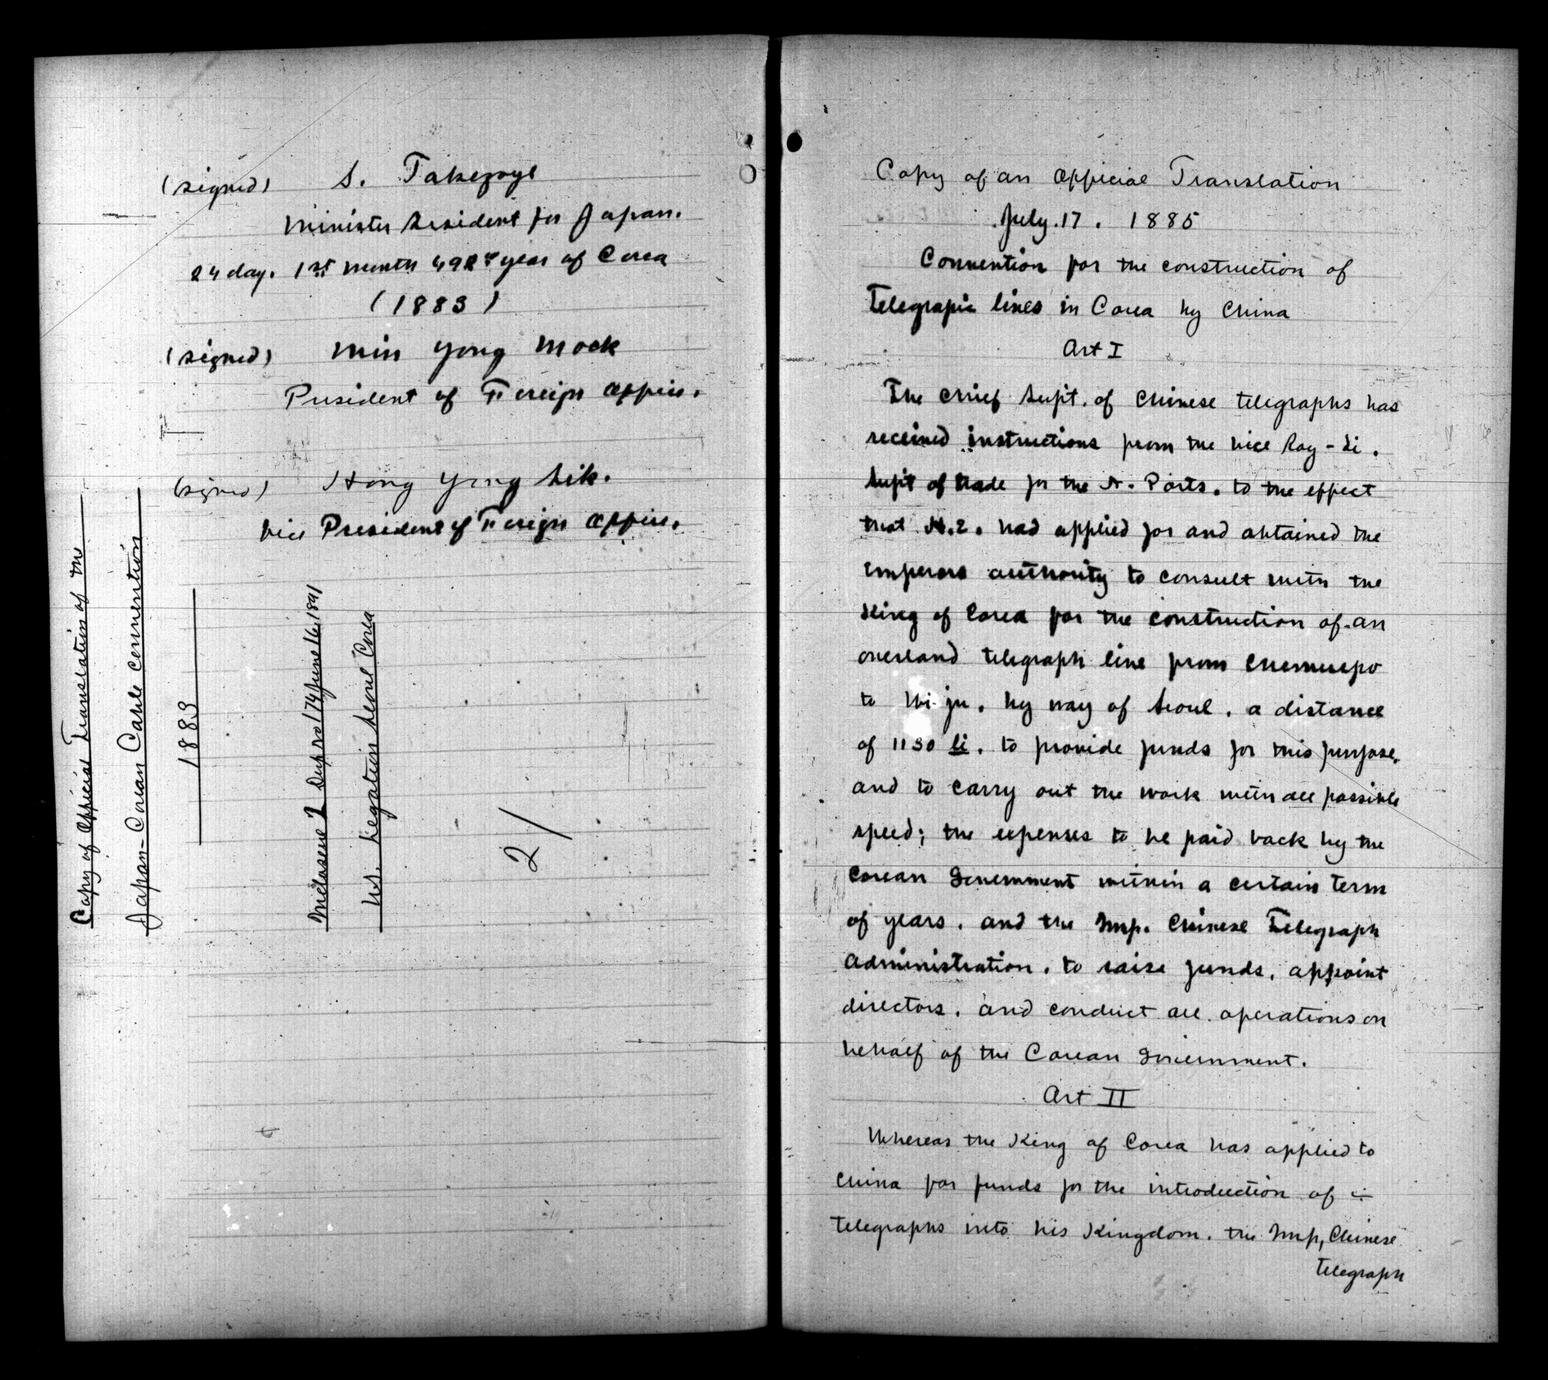 (signed) S. Takezoye
Minister Resident for Japan.
24 day. 1st month 492nd year of Corea
(1883)
(signed) Min Yong Mock
President of Foreign Office.
(signed) Hong Yong Sik.
Vice President of Foreign Office.
Copy of Official Translation of the
Japan-Corean Cable Convention
1883
Inclosure 2 Dup no 174 June 16, 1891
U.S. Legation Seoul Corea
2/
Copy of an Official Translation
July. 17. 1885
Convention for the construction of
Telegrapic lines in Corea by China
Art I
The Chief Supt. of Chinese telegraphs has
received instructions from the Vice Roy-Li.
Supt of trade for the N. Ports. to the effect
that H.E. had applied for and obtained the
Emperors authority to consult with the
King of Corea for the construction of an
overland telegraph line from Chemulpo
to Wi-ju. by way of Seoul. a distance
of 1130 li. to provide funds for this purpose.
and to carry out the work with all possible
speed; the expenses to be paid back by the
Corean Government within a certain term
of years. and the Imp. Chinese Telegraph
administration. to raise funds. appoint
directors. and conduct all operations on
behalf of the Corean Government.
Art II
Whereas the King of Corea has applied to
China for funds for the introduction of
telegraphs into his Kingdom. the Imp, Chinese
telegraph